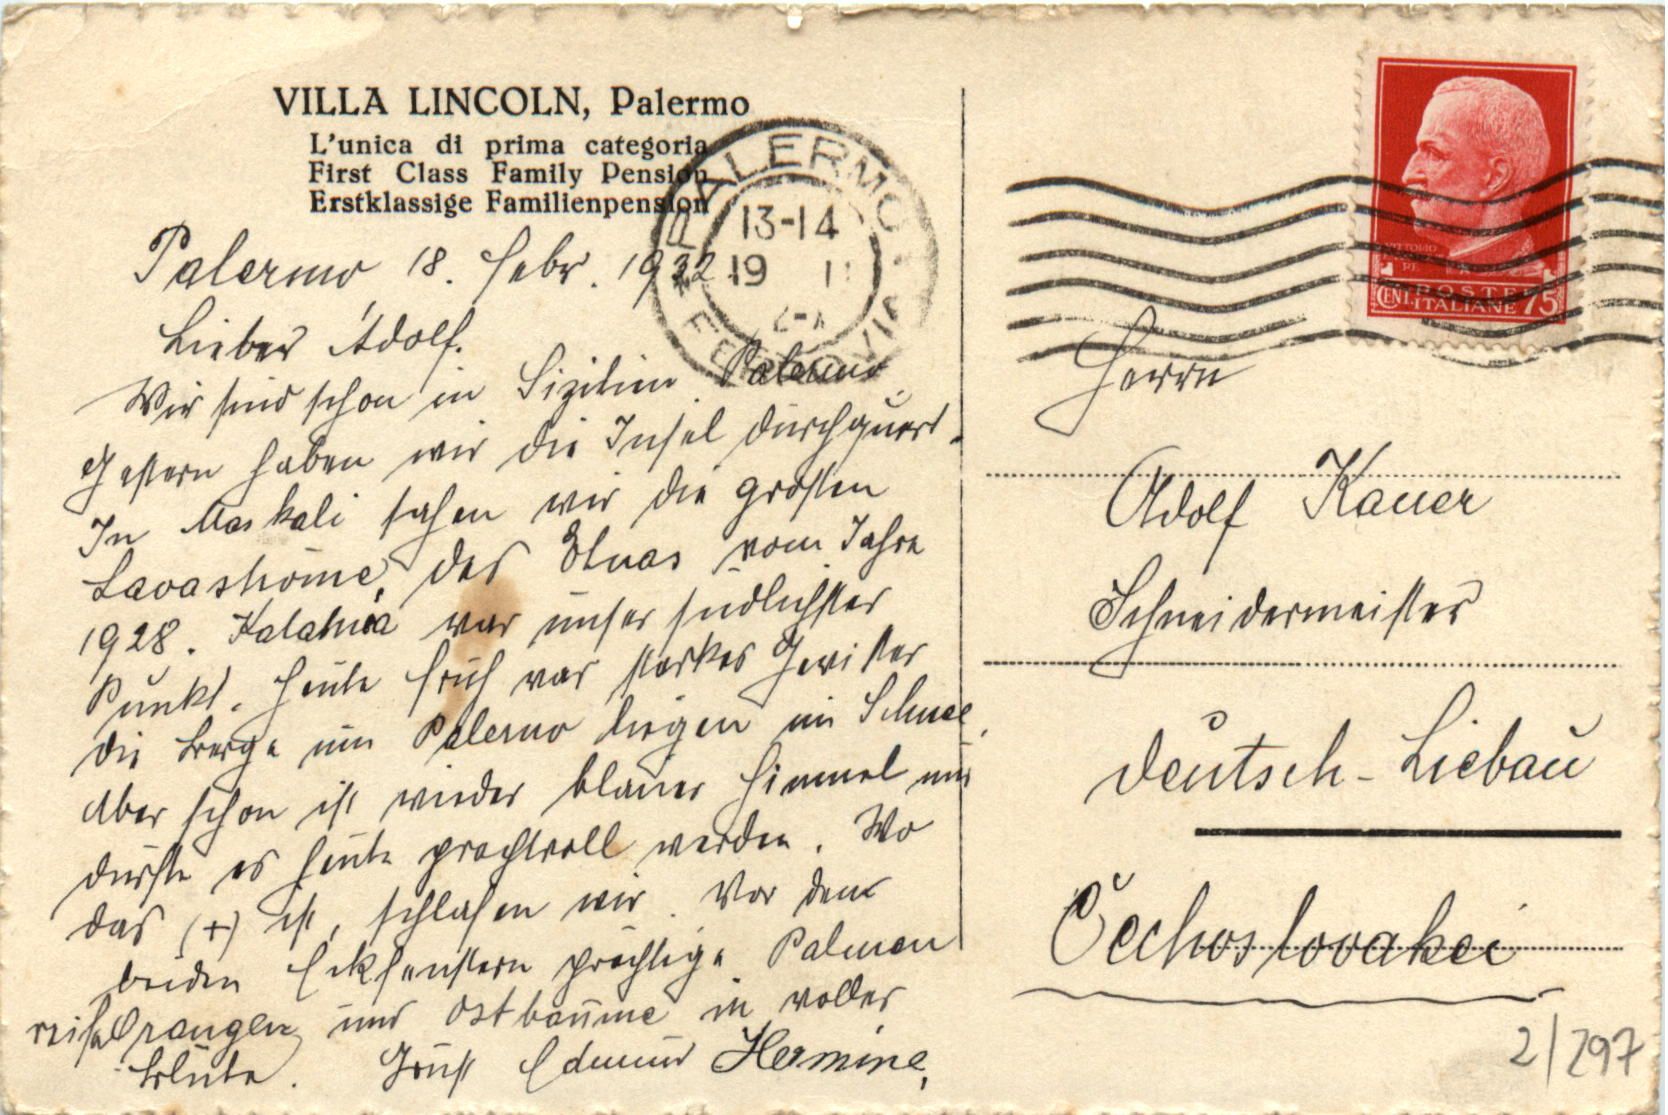 VILLA LINCOLN, Palermo
L'unica di prima categoria
First Class Family Pension
Erstklassige Familienpension
PALERMO FERROVIA
13-14
19 II
Palermo 18. Febr. 1932
Lieber Adolf.
Wir sind schon in Sizilien Palermo.
Gestern haben wir die Insel durchquert.
In Maskali sahen wir die großen
Lavaströme, des Etnas vom Jahre
1928. Katania war unser südlichster
Punkt. Heute früh war starkes Gewitter
die Berge um Palermo liegen im Schnee,
Aber schon ist wieder blauer Himmel und
dürfte es heute prachtvoll werden. Wo
das (+) ist, schlafen wir. Vor dem
beiden Eckfenstern prächtige Palmen
reife Orangen und Ostbäume in voller
Blüte. Gruß Edmund Hermine,
VITTORIO
CENT. POSTE ITALIANE 75
Herrn
Adolf Kauer
Schneidermeister
Deutsch-Liebau
Čechoslovakei
2/297